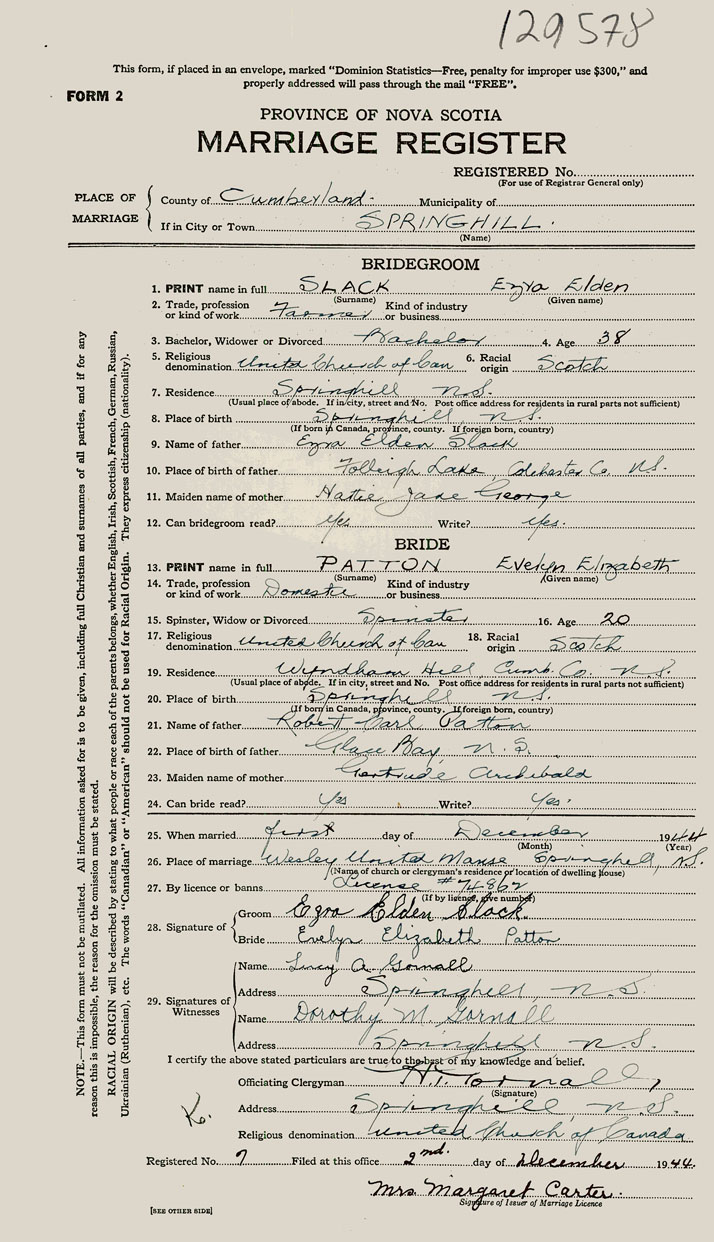 129578
This form, if placed in an envelope, marked "Dominion Statistics—Free, penalty for improper use $300," and
properly addressed will pass through the mail "FREE".
FORM 2
PROVINCE OF NOVA SCOTIA
MARRIAGE REGISTER
REGISTERED No.
(For use of Registrar General only)
PLACE OF MARRIAGE
County of Cumberland. Municipality of
If in City or Town SPRINGHILL.
(Name)
BRIDEGROOM
1. PRINT name in full SLACK Ezra Elden
(Surname) (Given name)
2. Trade, profession or kind of work Farmer Kind of industry or business
3. Bachelor, Widower or Divorced Bachelor 4. Age 38
5. Religious denomination United Church of Can 6. Racial origin Scotch
7. Residence Springhill N.S.
(Usual place of abode. If in city, street and No. Post office address for residents in rural parts not sufficient)
8. Place of birth Springhill, N.S.
(If born in Canada, province, county. If foreign born, country)
9. Name of father Ezra Elden Slack
10. Place of birth of father Folleigh Lake, Colchester Co. N.S.
11. Maiden name of mother Hattie Jane George
12. Can bridegroom read? Yes Write? Yes.
BRIDE
13. PRINT name in full PATTON Evelyn Elizabeth
(Surname) (Given name)
14. Trade, profession or kind of work Domestic Kind of industry or business
15. Spinster, Widow or Divorced Spinster 16. Age 20
17. Religious denomination United Church of Can 18. Racial origin Scotch
19. Residence Wyndham Hill, Cumb. Co. N.S.
(Usual place of abode. If in city, street and No. Post office address for residents in rural parts not sufficient)
20. Place of birth Springhill N.S.
(If born in Canada, province, county. If foreign born, country)
21. Name of father Robert Carl Patton
22. Place of birth of father Glace Bay, N.S.
23. Maiden name of mother Gertrude Archibald
24. Can bride read? Yes Write? Yes.
25. When married first day of December 1944
(Month) (Year)
26. Place of marriage Wesley United Manse Springhill, N.S.
(Name of church or clergyman's residence or location of dwelling house)
27. By licence or banns License #74862
(If by licence, give number)
28. Signature of
Groom Ezra Elden Slack.
Bride Evelyn Elizabeth Patton
29. Signatures of Witnesses
Name Lucy A. Gornall
Address Springhill, N.S.
Name Dorothy M. Gornall
Address Springhill N.S.
I certify the above stated particulars are true to the best of my knowledge and belief.
Officiating Clergyman Gornall,
(Signature)
Address Springhill N.S.
K.
Religious denomination United Church of Canada
Registered No. 7 Filed at this office 2nd. day of December 1944.
Mrs. Margaret Carter.
Signature of Issuer of Marriage Licence
[SEE OTHER SIDE]
NOTE.—This form must not be mutilated. All information asked for is to be given, including full Christian and surnames of all parties, and if for any
reason this is impossible, the reason for the omission must be stated.
RACIAL ORIGIN will be described by stating to what people or race each of the parents belongs, whether English, Irish, Scottish, French, German, Russian,
Ukrainian (Ruthenian), etc. The words "Canadian" or "American" should not be used for Racial Origin. They express citizenship (nationality).